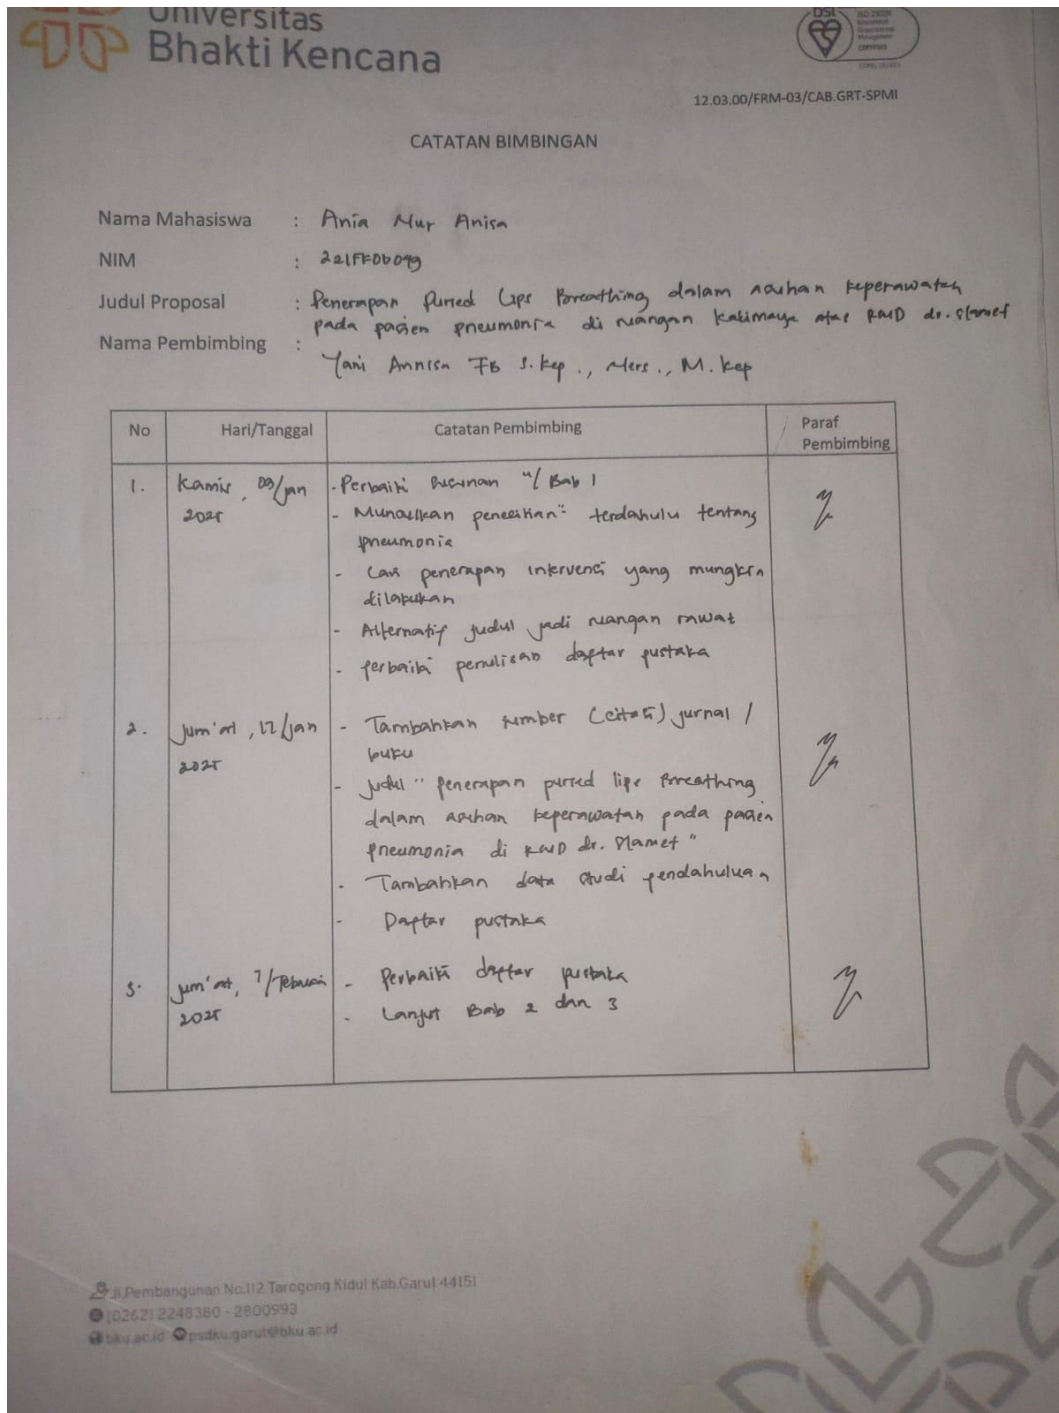 Universitas
Bhakti Kencana
DSI
ISO 21001
12.03.00/FRM-03/CAB.GRT-SPMI
CATATAN BIMBINGAN
Nama Mahasiswa : Ania Nur Anisa
NIM : 221FK06049
Judul Proposal : Penerapan Pursed Lips Breathing dalam asuhan keperawatan
pada pasien pneumonia di ruangan Kalimaya atas RSUD dr. Slamet
Nama Pembimbing :
Yani Annisa FB S.Kep., Ners., M.Kep
No Hari/Tanggal Catatan Pembimbing Paraf
Pembimbing
1. Kamis, 09/Jan - Perbaiki susunan u/ Bab 1
2025 - Munculkan penelitian² terdahulu tentang
pneumonia
- Cari penerapan intervensi yang mungkin
dilakukan
- Alternatif judul jadi ruangan rawat
- Perbaiki penulisan daftar pustaka
2. Jum'at, 17/Jan - Tambahkan sumber (citasi) jurnal /
2025 buku
- Judul " Penerapan pursed lips Breathing
dalam asuhan keperawatan pada pasien
pneumonia di RSUD dr. Slamet "
- Tambahkan data studi pendahuluan
- Daftar pustaka
3. Jum'at, 7/Februari - Perbaiki daftar pustaka
2025 - Lanjut Bab 2 dan 3
Jl.Pembangunan No.112 Tarogong Kidul Kab.Garut 44151
(0262) 2248380 - 2800993
bku.ac.id psdku.garut@bku.ac.id